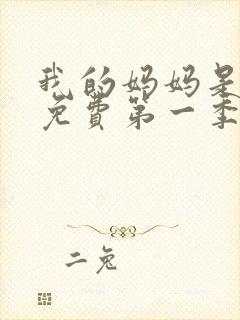 我的妈妈是
免费第一季
二兔